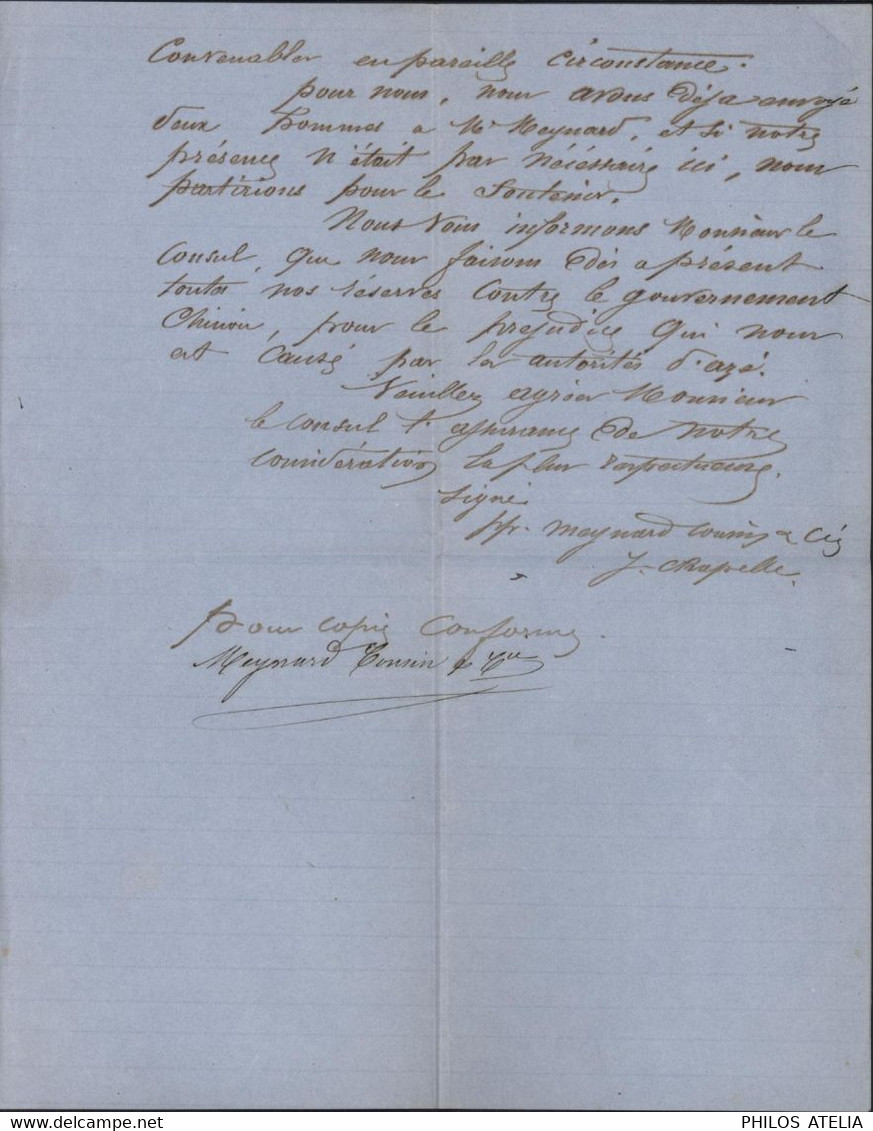 Convenables en pareille circonstance.
pour nous, nous avons déja envoyé
deux hommes a Mr Meynard, et si notre
présence n'était pas nécéssaire ici, nous
partirions pour le soutenir.
Nous vous informons Monsieur le
Consul, que nous faisons dès a présent
toutes nos réserves contre le gouvernement
Chinois, pour le préjudice qui nous
est causé par les autorités d'azé.
Veuillez agréer Monsieur
le Consul l'assurance de notre
considération la plus respectueuse.
signé
pp. Meynard Cousin & Cie
J. Chapelle.
Pour copie conforme.
Meynard Cousin & Cie
PHILOS ATELIA